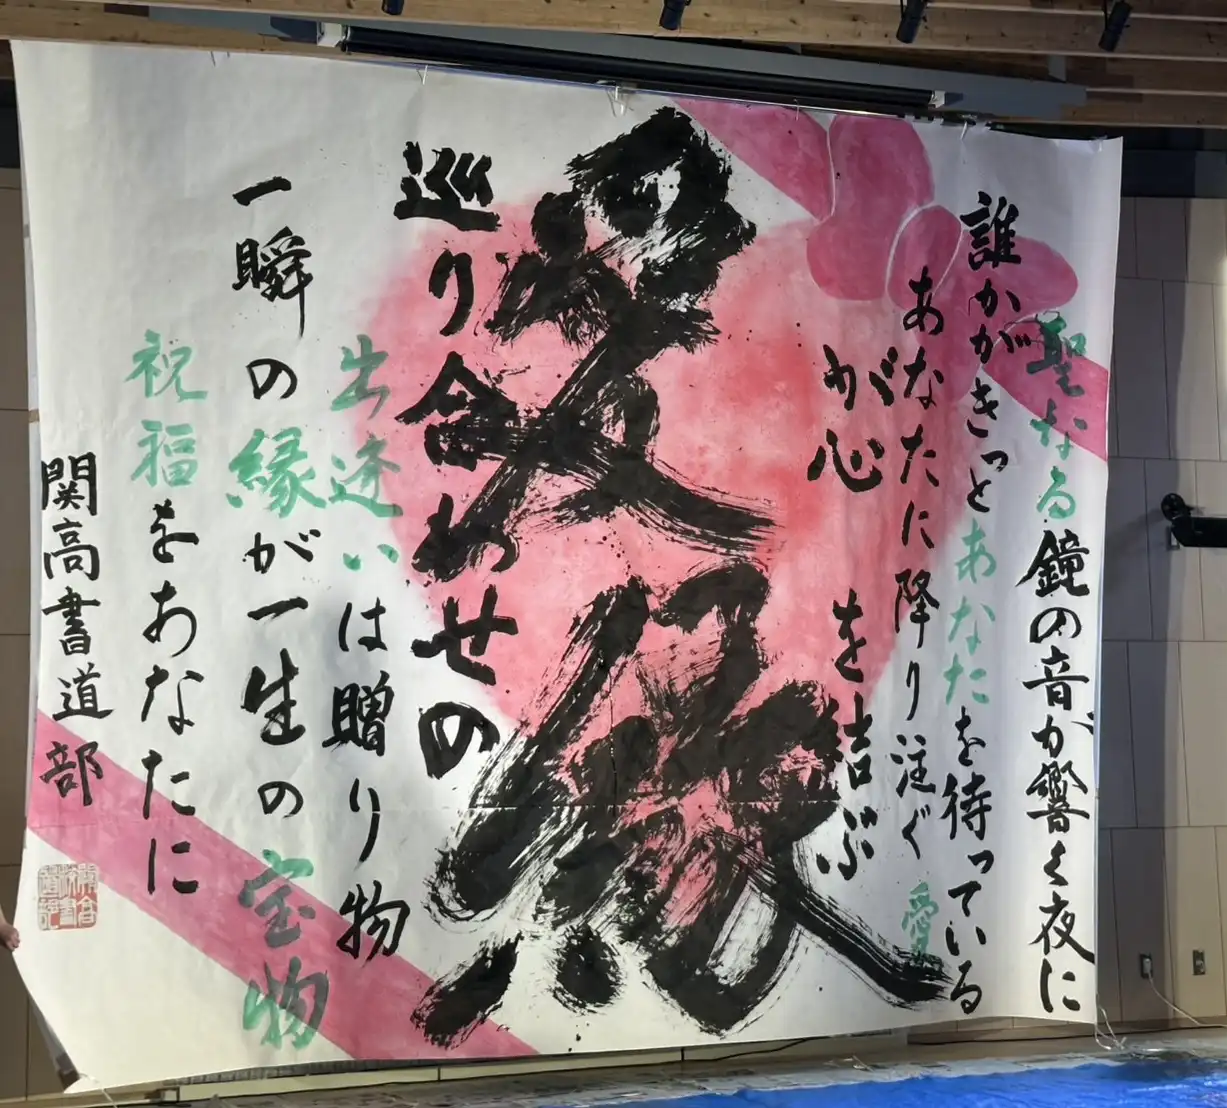 聖なる鏡の音が響く夜に
誰かがきっとあなたを待っている
あなたに降り注ぐ愛
が心を結ぶ
巡り合わせの
出逢いは贈り物
一瞬の縁が一生の宝物
祝福をあなたに
関高書道部